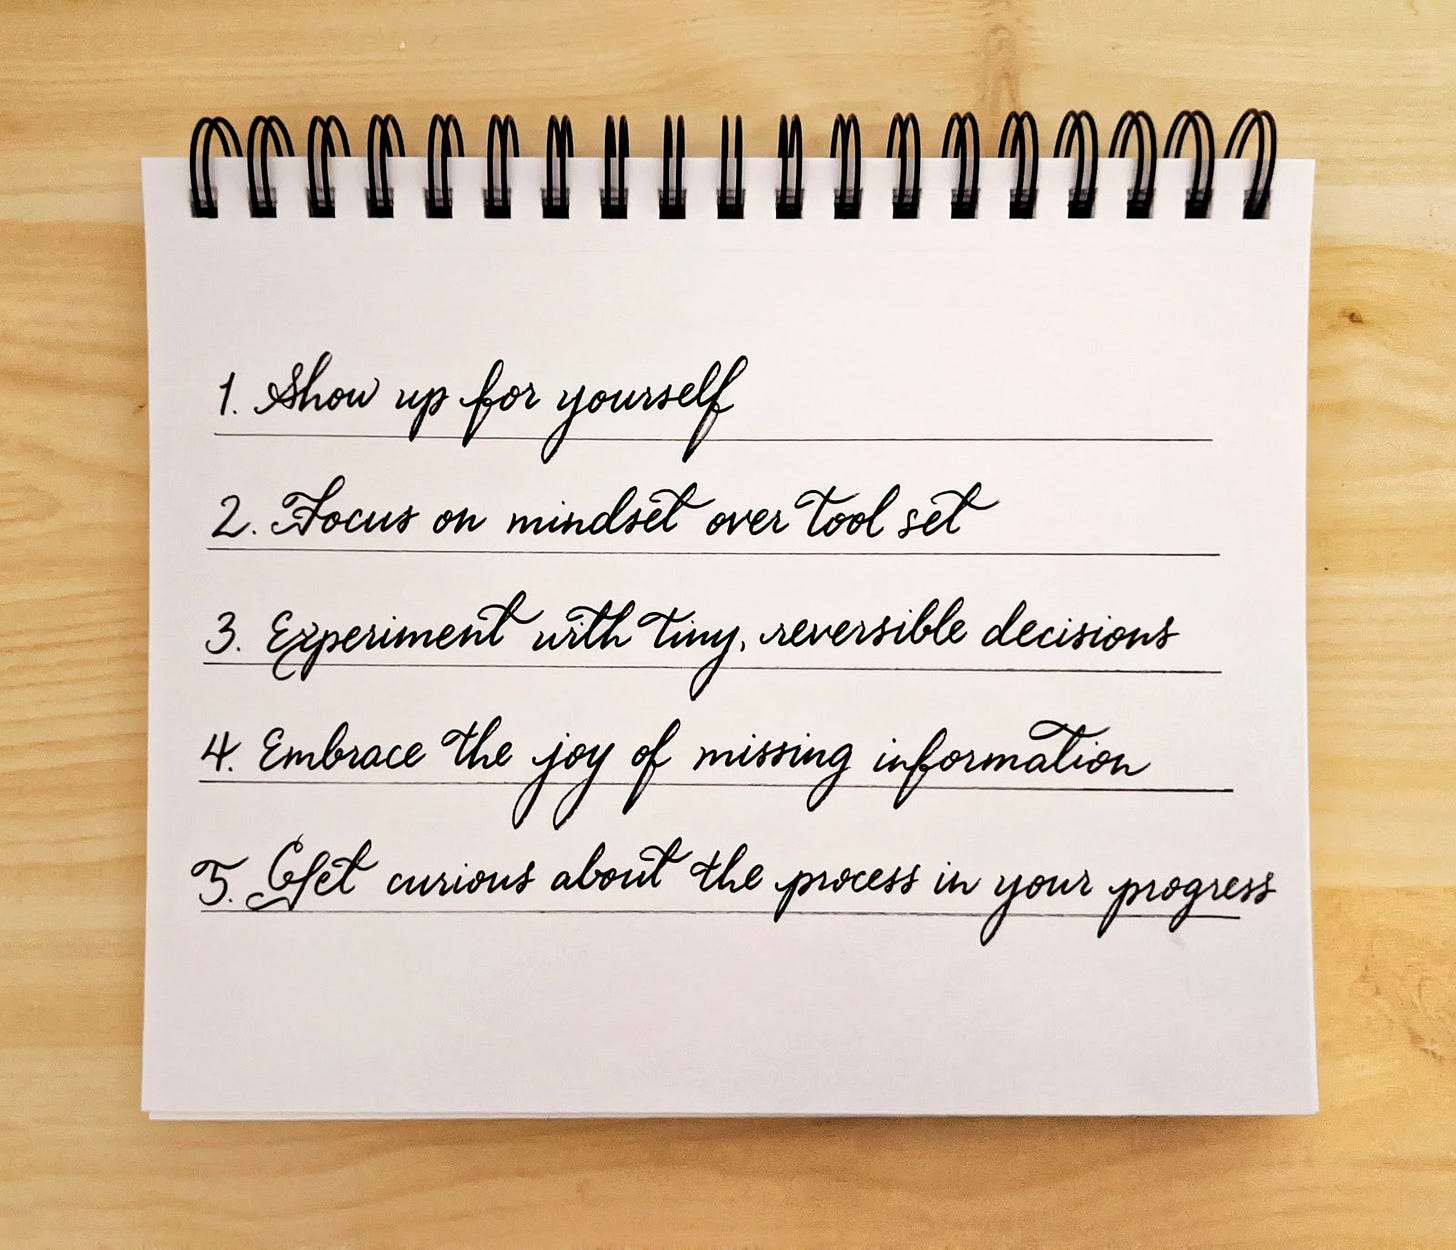 1. Show up for yourself
2. Focus on mindset over tool set
3. Experiment with tiny, reversible decisions
4. Embrace the joy of missing information
5. Get curious about the process in your progress